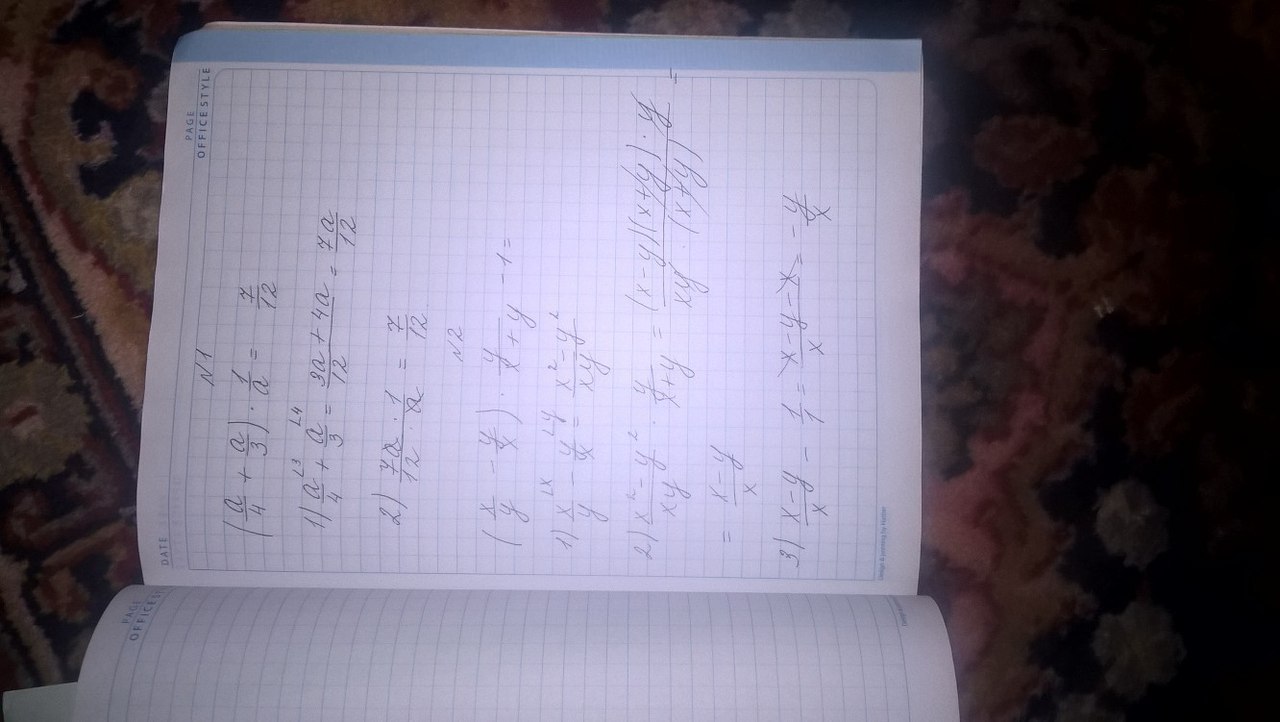 DATE
PAGE
OFFICE STYLE
N1
(a/4 + a/3) · 1/a = 7/12
1) a/4 ∟3 + a/3 ∟4 = 3a + 4a/12 = 7a/12
2) 7a · 1/12 · a = 7/12
N2
(x/y - y/x) · y/x + y - 1 =
1) x/y ∟x - y/x ∟y = x² - y²/xy
2) x² - y²/xy · y/x + y = (x - y)(x + y) · y/xy · (x + y) =
= x - y/x
3) x - y/x - 1/1 = x - y - x/x = - y/x
PAGE
OFFICE ST